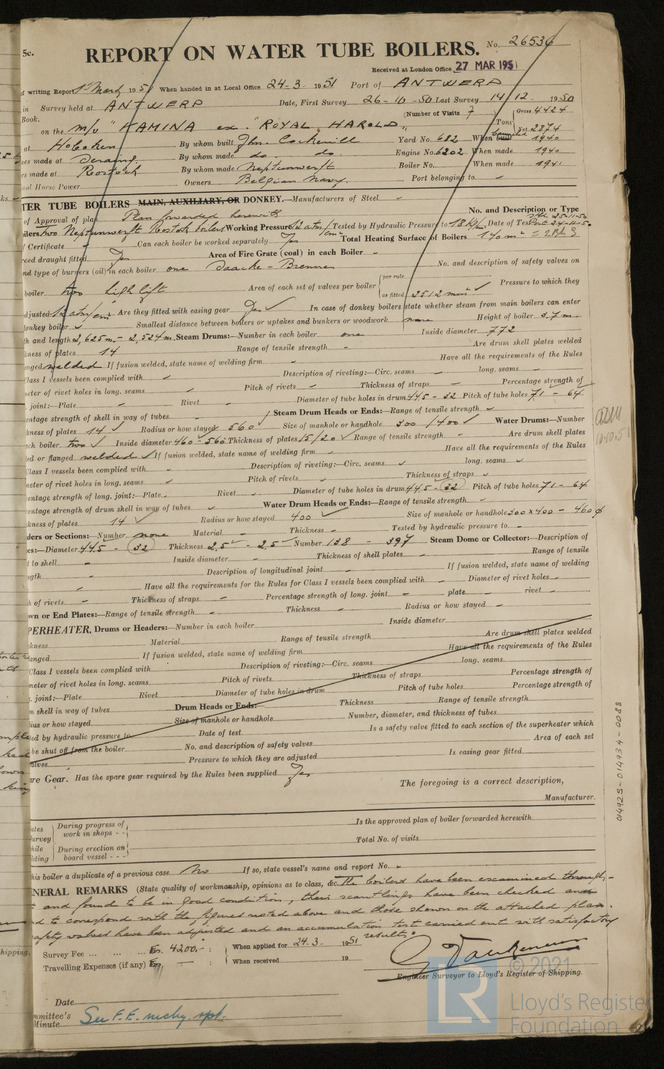 5c.
REPORT ON WATER TUBE BOILERS. No. 26536
Received at London Office 27 MAR 1951
of writing Report 1st March 1951 When handed in at Local Office 24-3-1951 Port of ANTWERP
in Survey held at ANTWERP Date, First Survey 26-10-50 Last Survey 14/12 1950
Book. (Number of Visits 7
on the m/v "KAMINA ex. "ROYAL HAROLD" Tons Gross 4424 Net 2874
at Hoboken By whom built John Cockerill Yard No. 682 When built 1940
es made at Seraing By whom made do. do. Engine No. 6202 When made 1940
rs made at Rostock By whom made Neptunwerft Boiler No. - When made 1941
al Horse Power Owners Belgian Navy. Port belonging to
TER TUBE BOILERS MAIN, AUXILIARY, OR DONKEY.—Manufacturers of Steel -
of Approval of plan Plan forwarded herewith No. and Description or Type
ilers two Neptunwerft Rostock boilers Working Pressure Tested by Hydraulic Pressure to Date of Test
of Certificate Can each boiler be worked separately Yes Total Heating Surface of Boilers 140 m²
ced draught fitted Yes Area of Fire Grate (coal) in each Boiler -
nd type of burners (oil) in each boiler one Saacke-Brenner No. and description of safety valves on
boiler two high lift Area of each set of valves per boiler { per rule as fitted 2512 mm² Pressure to which they
adjusted Are they fitted with easing gear Yes In case of donkey boilers state whether steam from main boilers can enter
onkey boiler Smallest distance between boilers or uptakes and bunkers or woodwork none Height of boiler 3.7 m
th and length 2,625m - 2,524m Steam Drums:—Number in each boiler one Inside diameter 772
kness of plates 14 Range of tensile strength Are drum shell plates welded
nged welded If fusion welded, state name of welding firm Have all the requirements of the Rules
Class I vessels been complied with Description of riveting:—Circ. seams long. seams
meter of rivet holes in long. seams Pitch of rivets Thickness of straps Percentage strength of
joint:—Plate Rivet Diameter of tube holes in drum 44.5 - 32 Pitch of tube holes 71 - 64
entage strength of shell in way of tubes Steam Drum Heads or Ends:—Range of tensile strength
kness of plates 14 Radius or how stayed 560 Size of manhole or handhole 300 / 400 Water Drums:—Number
ch boiler two Inside diameter 460-560 Thickness of plates 15/20 Range of tensile strength Are drum shell plates
ed or flanged welded If fusion welded, state name of welding firm Have all the requirements of the Rules
Class I vessels been complied with Description of riveting:—Circ. seams long. seams
meter of rivet holes in long. seams Pitch of rivets Thickness of straps
entage strength of long. joint:—Plate Rivet Diameter of tube holes in drum 44.5 - 32 Pitch of tube holes 71 - 64
entage strength of drum shell in way of tubes Water Drum Heads or Ends:—Range of tensile strength
kness of plates 14 Radius or how stayed 400 Size of manhole or handhole 300 x 400 - 460 ø
ders or Sections:—Number none Material Thickness Tested by hydraulic pressure to
es:—Diameter 44.5 - 32 Thickness 2,5 - 2,5 Number 138 - 397 Steam Dome or Collector:—Description of
t to shell Inside diameter Thickness of shell plates Range of tensile
ngth Description of longitudinal joint If fusion welded, state name of welding
Have all the requirements for the Rules for Class I vessels been complied with Diameter of rivet holes
h of rivets Thickness of straps Percentage strength of long. joint plate rivet
wn or End Plates:—Range of tensile strength Thickness Radius or how stayed
PERHEATER, Drums or Headers:—Number in each boiler Inside diameter
kness Material Range of tensile strength Are drum shell plates welded
anged If fusion welded, state name of welding firm Have all the requirements of the Rules
Class I vessels been complied with Description of riveting:—Circ. seams long. seams
meter of rivet holes in long. seams Pitch of rivets Thickness of straps Percentage strength of
joint:—Plate Rivet Diameter of tube holes in drum Pitch of tube holes Percentage strength of
m shell in way of tubes Drum Heads or Ends:— Thickness Range of tensile strength
ius or how stayed Size of manhole or handhole Number, diameter, and thickness of tubes
ed by hydraulic pressure to Date of test Is a safety valve fitted to each section of the superheater which
be shut off from the boiler No. and description of safety valves Area of each set
alves Pressure to which they are adjusted Is easing gear fitted
are Gear. Has the spare gear required by the Rules been supplied Yes
The foregoing is a correct description,
Manufacturer.
During progress of work in shops Is the approved plan of boiler forwarded herewith
During erection on board vessel Total No. of visits
his boiler a duplicate of a previous case No If so, state vessel's name and report No.
NERAL REMARKS (State quality of workmanship, opinions as to class, &c. The boilers have been examined through-
and found to be in good condition, their scantlings have been checked and
d to correspond with the figures noted above and those shown on the attached plan.
afety valves have been adjusted and an accumulation test carried out with satisfactory
results.
Survey Fee Fr. 4200.- When applied for 24.3. 1951
Travelling Expenses (if any) Fr. When received 19
Engineer Surveyor to Lloyd's Register of Shipping.
Date
mmittee's Minute See F.E. mchy. rpt.
014925-014934-0088
© 2021
LR
Lloyd's Register
Foundation